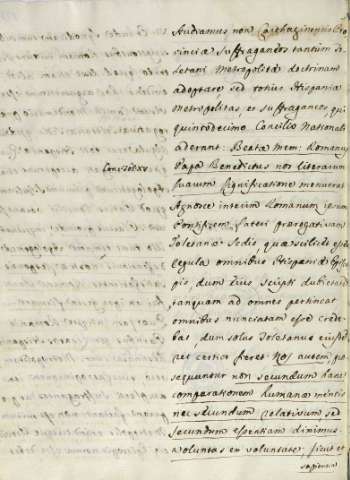 Audiamus non Carthaginensis Pro
vinciæ suffraganeos tantum To
letani Metropolitæ doctrinam
adoptare sed totius Hispaniæ
Metropolitas, et suffraganeos qui
quintodecimo Concilio Nationali
aderant: Beatæ Mem: Romanus
Papa Benedictus nos literarum
Conc. Tol. xv.
suarum significatione monuerat
Agnosce interim Romanum ipsum
Pontificem fateri prærogativam
Toletanæ Sedis, quæ scilicet esset
regula omnibus Hispaniæ Episco
pis, dum ejus scripti dubietatem
tanquam ad omnes pertineat
omnibus nunciatam esse crede
bat dum solus Toletanus ejusdem
rei certior fieret Nos autem
sequuntur non secundum hanc
comparationem humanæ mentis
nec secundum relativum sed
secundum essentiam diximus
voluntas ex voluntate, sicut et
sapientia